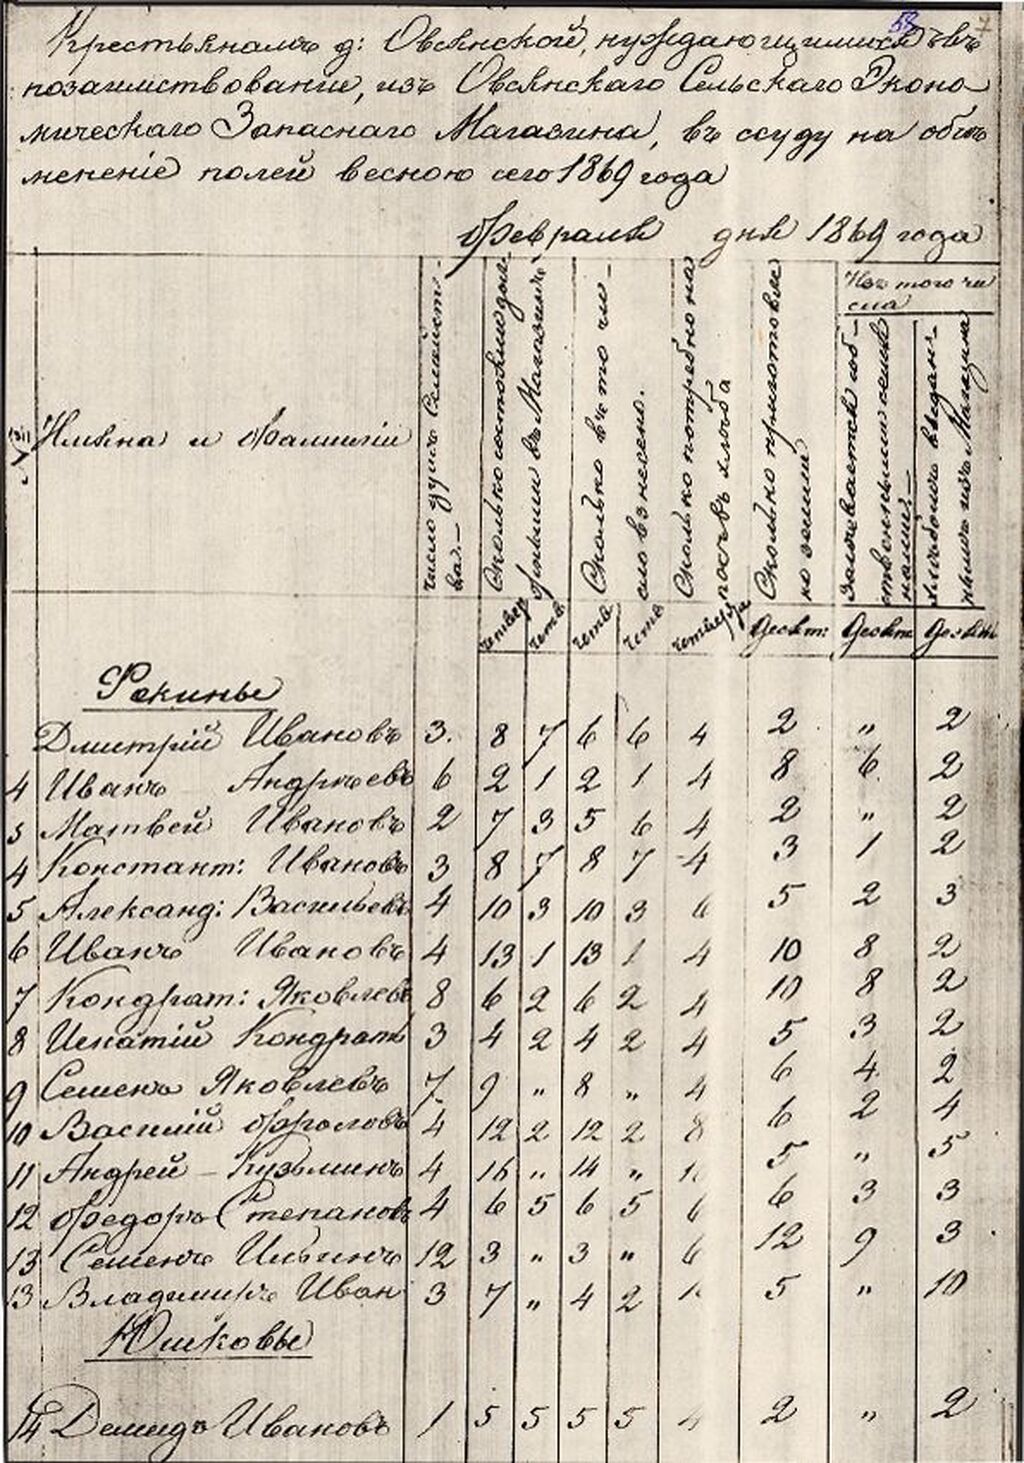 58 7
Крестьянамъ д: Овсянской, нуждающимися въ
позаимствованіе, изъ Овсянскаго Сельскаго Эконо-
мическаго Запаснаго Магазина, въ ссуду на обсѣ-
мененіе полей весною сего 1869 года
Февраля дня 1869 года
№ Имяна и Фамиліи
Число душъ Семейст-
ва.-
Сколько состояли дол-
жными въ Магазинъ
Сколько въ то чи-
сло взнесено.
Сколько потребно на
посѣвъ хлѣба
Сколько приготовле
но земли
Изъ того чи
сла
Засѣвается соб-
ственными семе
нами.-
хлѣбомъ выдан-
нымъ изъ Магазина
четвер четв четв четв четвер Десят: Десят Десят
Фокины
Дмитрій Ивановъ 3. 8 7 6 6 4 2 „ 2
4 Иванъ Андрѣевъ 6 2 1 2 1 4 8 6 2
3 Матвей Ивановъ 2 7 3 5 6 4 2 „ 2
4 Констант: Ивановъ 3 8 7 8 7 4 3 1 2
5 Александ: Васильевъ 4 10 3 10 3 6 5 2 3
6 Иванъ Ивановъ 4 13 1 13 1 4 10 8 2
7 Кондрат: Яковлевъ 8 6 2 6 2 4 10 8 2
8 Игнатій Кондрат 3 4 2 4 2 4 5 3 2
9 Семенъ Яковлевъ 7 9 „ 8 „ 4 6 4 2
10 Василій Фроловъ 4 12 2 12 2 8 6 2 4
11 Андрей - Кузьминъ 4 16 „ 14 „ 5 „ 5
12 Федоръ Степановъ 4 6 5 6 5 6 6 3 3
13 Семенъ Ильинъ 12 3 „ 3 „ 6 12 9 3
13 Владимиръ Иван 3 7 „ 4 2 5 „ 10
Юшковы
14 Демидъ Ивановъ 1 5 5 5 5 4 2 „ 2